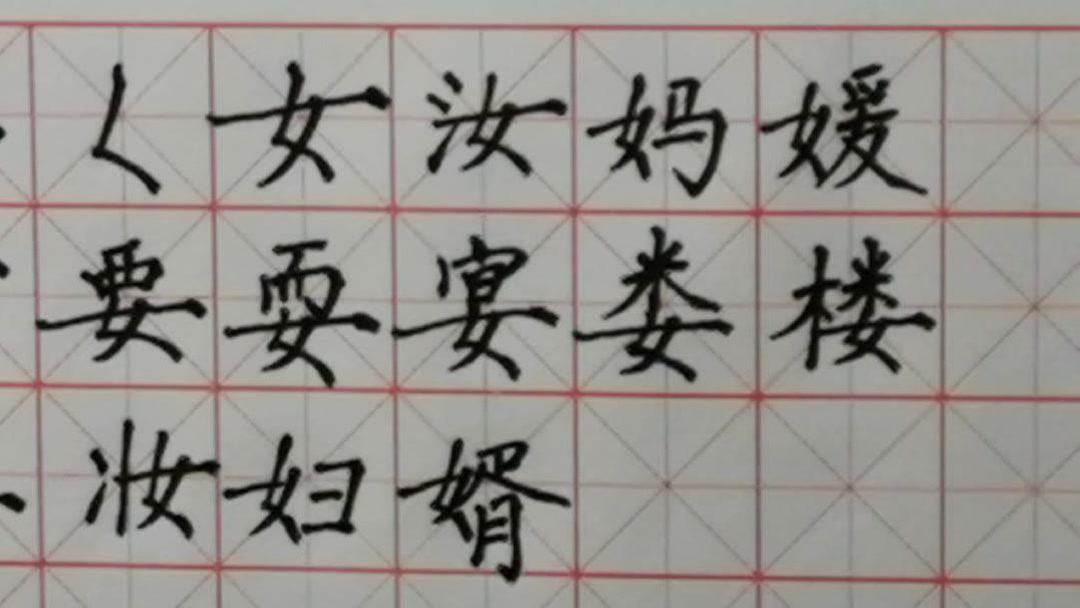 く女汝妈媛
要耍宴娄楼
妆妇婿